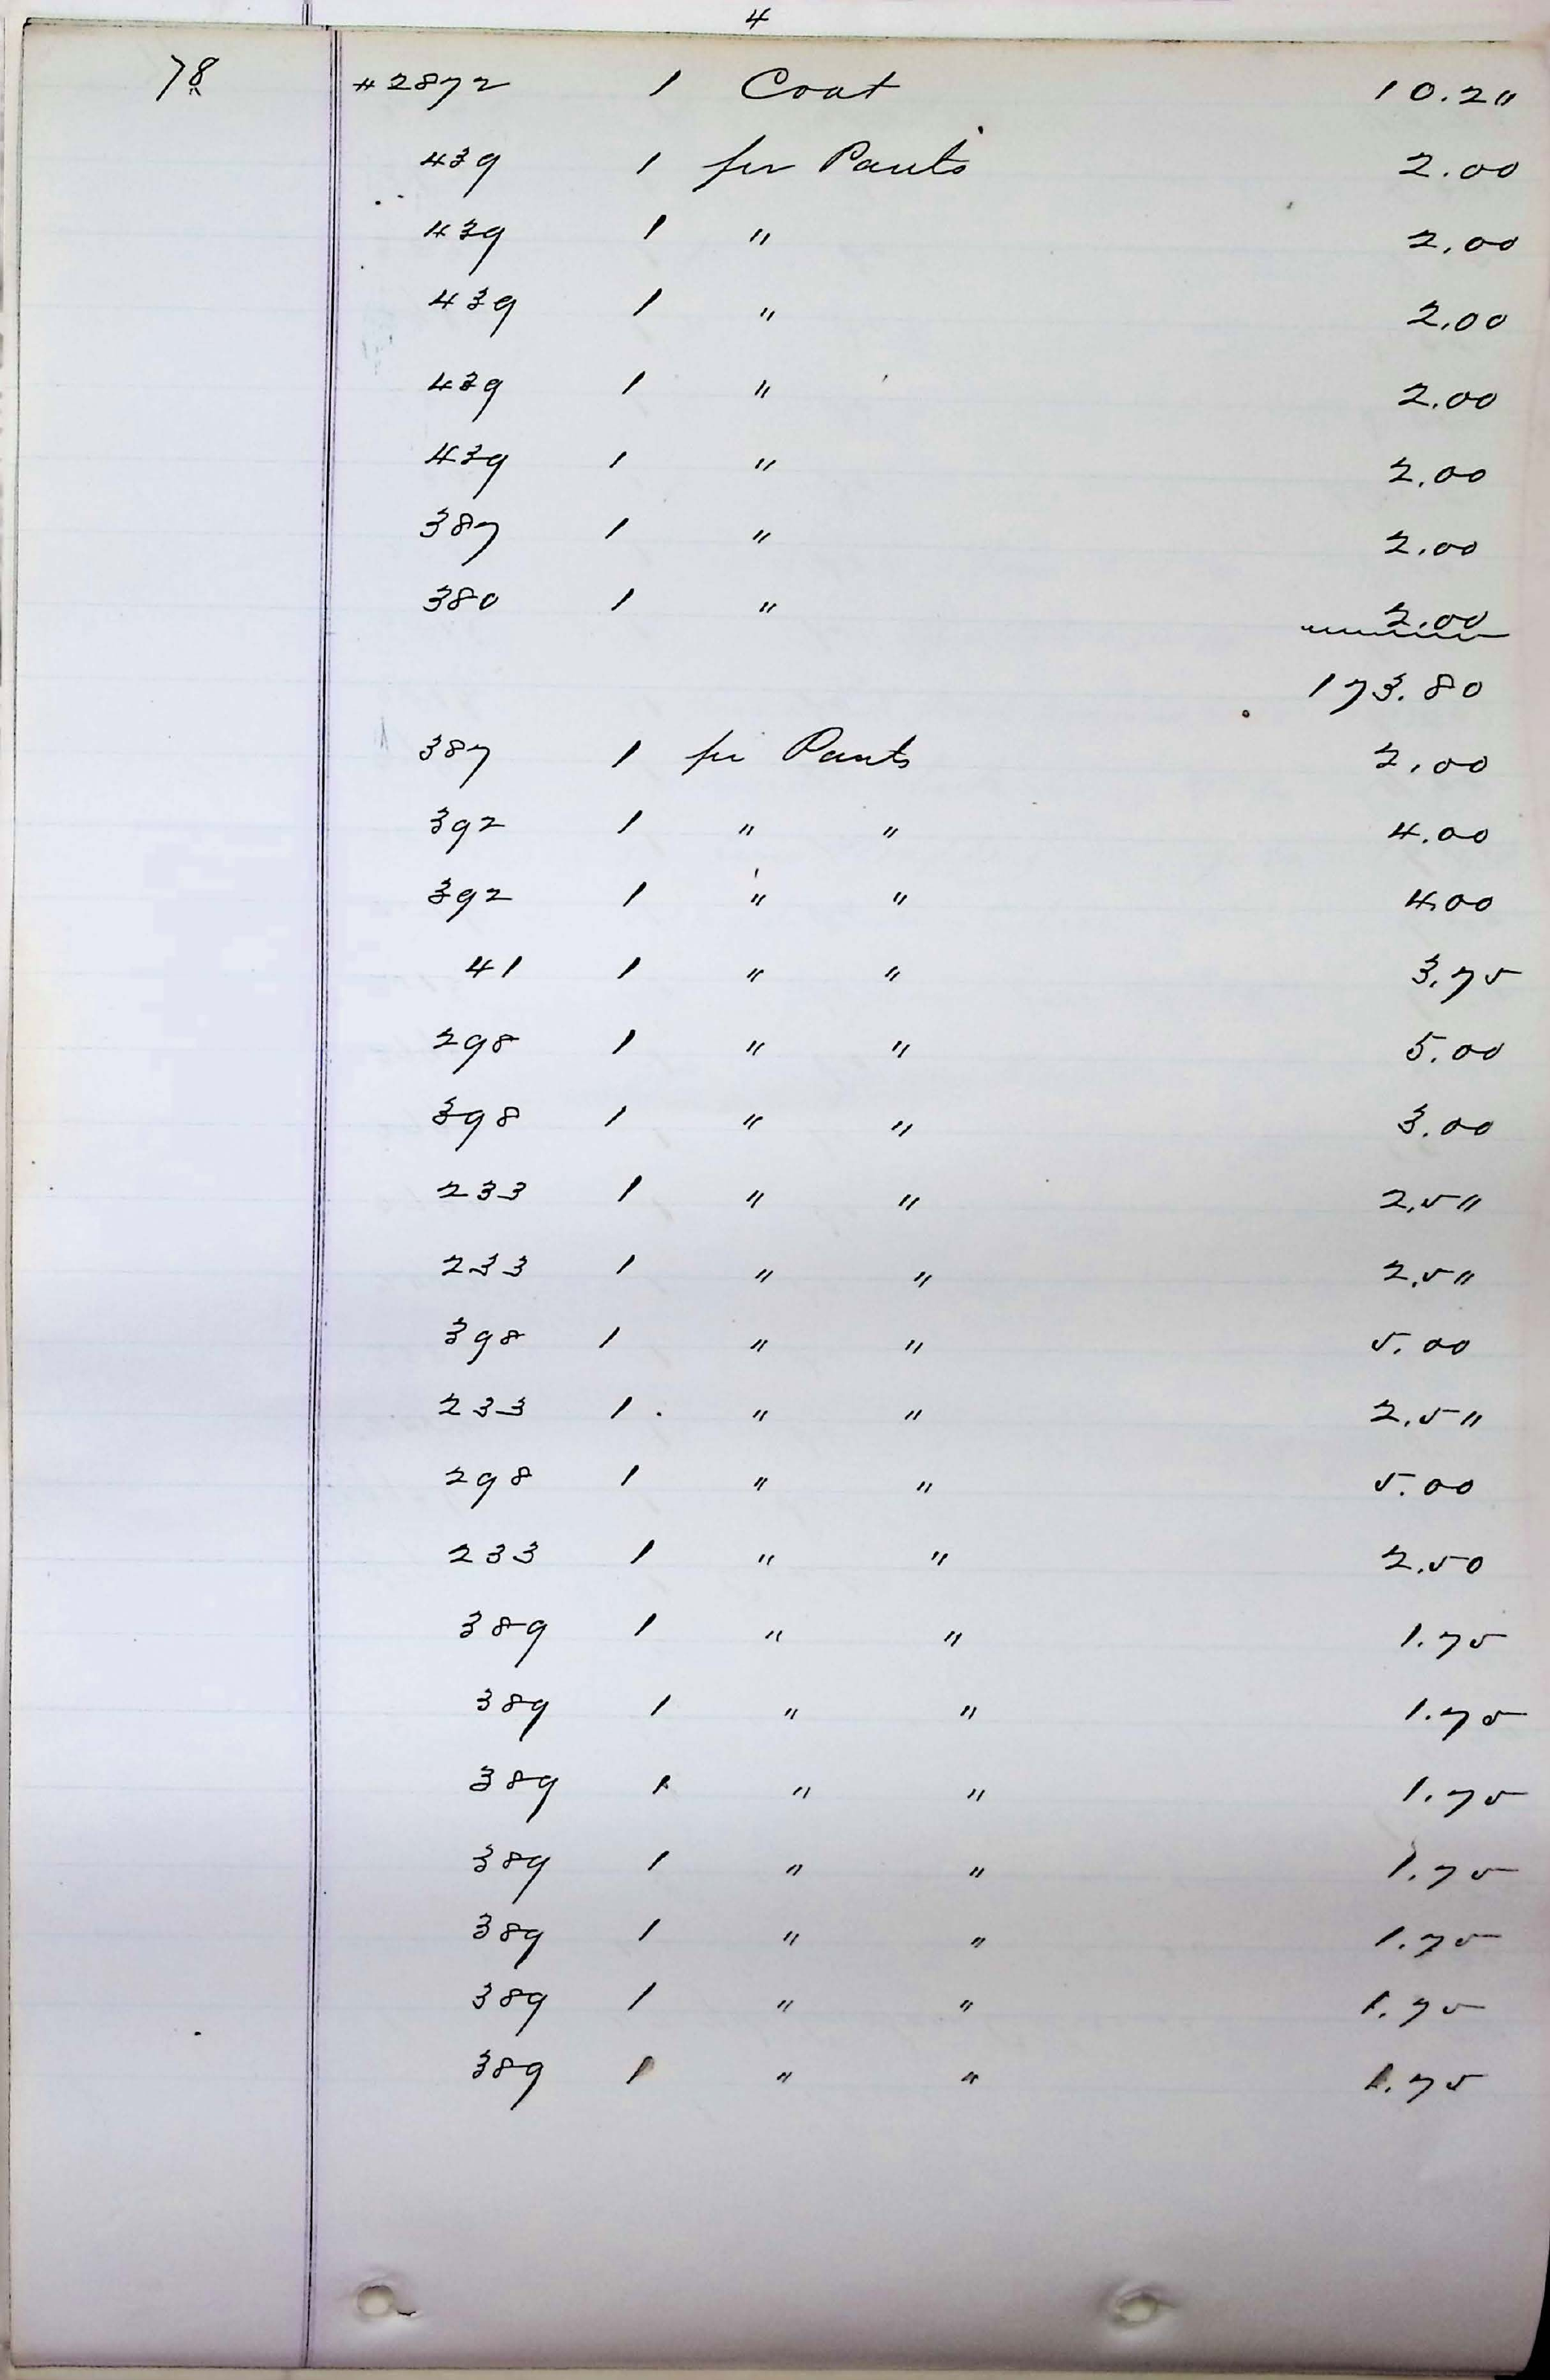 4
78 #2872 1 Coat 10.2"
439 1 pr Pants 2.00
439 1 " 2.00
439 1 " 2.00
439 1 " 2.00
439 1 " 2.00
387 1 " 2.00
380 1 " 2.00
173.80
387 1 pr Pants 2.00
392 1 " " 4.00
392 1 " " 4.00
41 1 " " 3.75
298 1 " " 5.00
398 1 " " 3.00
233 1 " " 2.5"
233 1 " " 2.5"
398 1 " " 5.00
233 1 " " 2.5"
298 1 " " 5.00
233 1 " " 2.50
389 1 " " 1.75
389 1 " " 1.75
389 1 " " 1.75
389 1 " " 1.75
389 1 " " 1.75
389 1 " " 1.75
389 1 " " 1.75